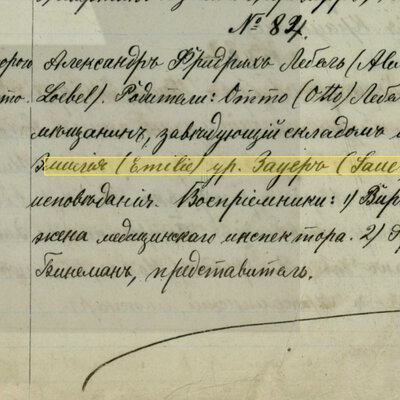 № 84.
орого Александръ Фридрихъ Лебель (Ale
то. Loebel). Родители: Отто (Otto) Лебел
мѣщанинъ, завѣдующій складомъ
Эмилія (Emilie) ур. Зауеръ (Saue
исповѣданія. Воспріемники: 1) Вар
жена медицинскаго инспектора. 2)
Бинеманъ, представитель.